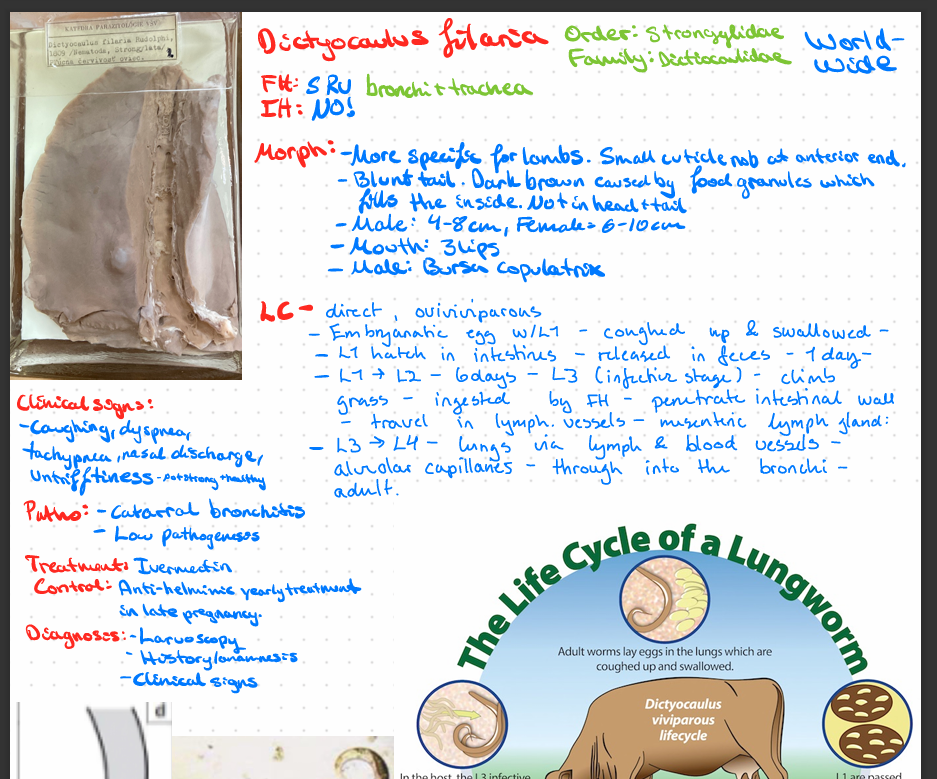 KATEDRA PARAZITOLÓGIE
Dictyocaulus filaria Rudolphi,
1809 /Nematoda, Strongylata/
Dictyocaulus filaria
Order: Strongylidae
Family: Dictiocaulidae
World-
wide
FH: S RU bronchi + trachea
IH: NO!
Morph: - More specific for lambs. Small cuticle nob at anterior end.
- Blunt tail. Dark brown caused by food granules which
fills the inside. Not in head + tail
- Male: 4-8cm, Female = 6-10cm
- Mouth: 3 lips
- Male: Bursa copulatrix
LC - direct, oviviviparous
- Embryanatic egg w/L1 - coughed up & swallowed -
- L1 hatch in intestines - released in feces - 1 day -
- L1 → L2 - 6days - L3 (infective stage) - climb
grass - ingested by FH - penetrate intestinal wall
- travel in lymph. vessels - mesenteric lymph gland:
- L3 → L4 - lungs via lymph & blood vessels -
alveolar capillaries - through into the bronchi -
adult.
Clinical signs:
- Coughing, dyspnea,
tachypnea, nasal discharge,
Untrifftiness - not strong + healthy
Patho: - Catarral bronchitis
- Low pathogenesis
Treatment: Ivermectin
Control: Anti-helminic yearly treatment
in late pregnancy.
Diagnosis: - Larvoscopy
- History/anamnesis
- Clinical signs
d
The Life Cycle of a Lungworm
Adult worms lay eggs in the lungs which are
coughed up and swallowed.
Dictyocaulus
viviparous
lifecycle
In the host, the L3 infective
L1 are passed